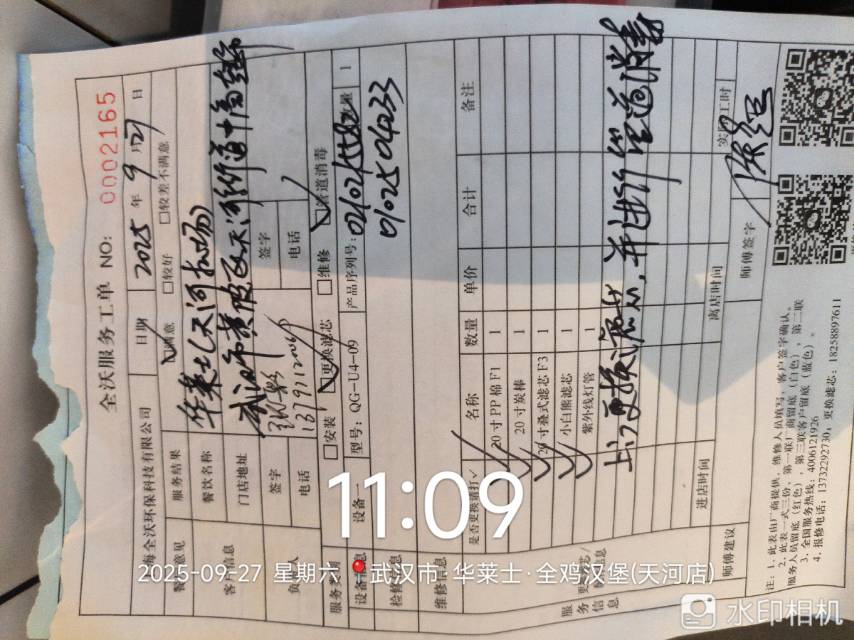 全沃服务工单 NO: 0002165
海全沃环保科技有限公司 日期 2025 年 9 月 27 日
服务结果 满意 □较好 □较差不满意
客户信息 餐饮名称 华莱士(天河机场)
门店地址 武汉市黄陂区天河街道
签字 签字
电话 电话
□安装 更换滤芯 □维修 管道消毒
设备信息 设备一 型号: QG-U4-09 产品序列号: 数量 1
0102504033
是否更换请打✓ 名称 数量 单价 合计 备注
20寸PP棉F1 1
20寸炭棒 1
寸叠式滤芯F3 1
小白熊滤芯 1
紫外线灯管 1
上门更换滤芯,并进行管道消毒
进店时间 离店时间
师傅建议 师傅签字
注: 1. 此表由厂商提供, 维修人员填写, 客户签字确认。
2. 此表一式三份, 第一联厂商留底(白色), 第二联
服务人员留底(红色), 第三联客户留底(蓝色)。
3. 全国服务热线: 4006121926
4. 报修电话: 13732292730; 更换滤芯: 18258897611
11:09
2025-09-27 星期六 武汉市·华莱士·全鸡汉堡(天河店)
水印相机